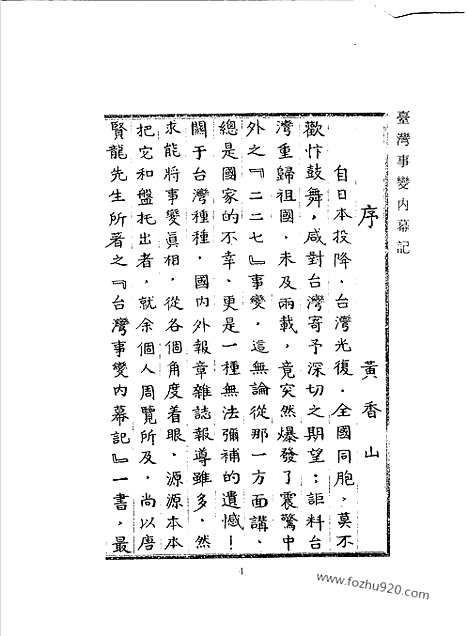 臺灣事變內幕記
序
黃香山
自日本投降，台灣光復，全國同胞，莫不
歡忭鼓舞，咸對台灣寄予深切之期望；詎料台
灣重歸祖國，未及兩載，竟突然爆發了震驚中
外之『二二七』事變，這無論從那一方面講，
總是國家的不幸，更是一種無法彌補的遺憾！
關于台灣種種，國內外報章雜誌報導雖多，然
求能將事變眞相，從各個角度着眼，源源本本
把它和盤托出者，就余個人周覽所及，尚以唐
賢龍先生所著之『台灣事變內幕記』一書，最
4
www.fozhu920.com